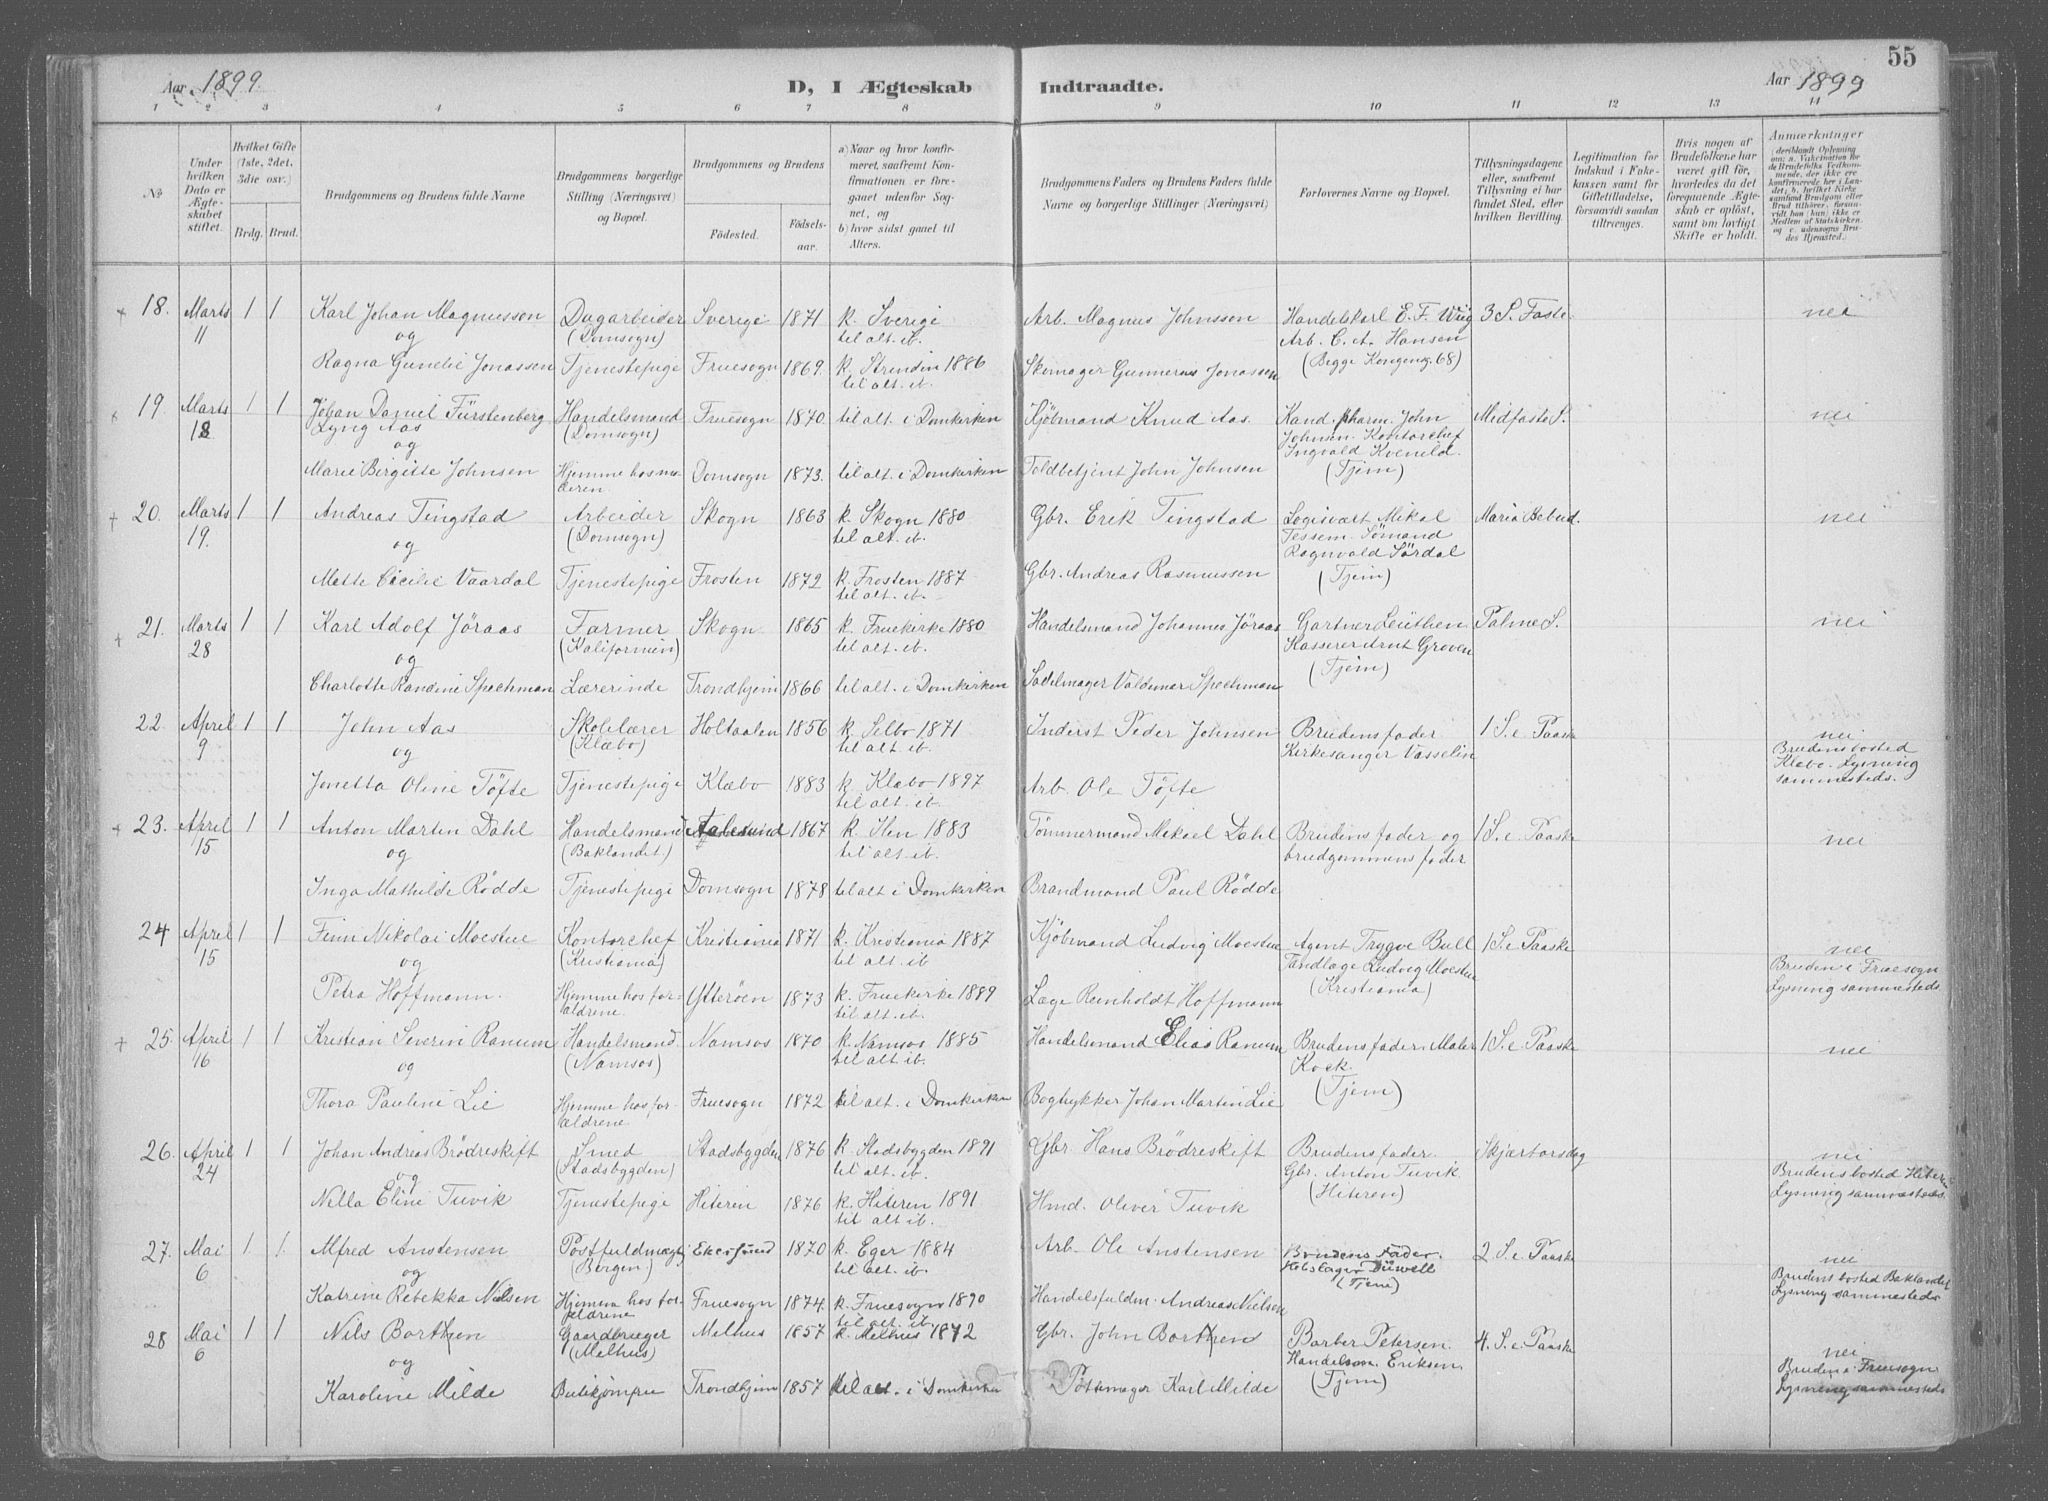 55
Aar 1899.
D, I Ægteskab Indtraadte.
Aar 1899
1 2 3 4 5 6 7 8 9 10 11 12 13 14
No
Under hvilken Dato er Ægteskabet stiftet.
Hvilket Gifte (1ste, 2det, 3die osv.)
Brdg. Brud.
Brudgommens og Brudens fulde Navne
Brudgommens borgerlige Stilling (Næringsvei) og Bopæl.
Brudgommens og Brudens
Födested. Födsels-aar.
a) Naar og hvor konfirmeret, saafremt Konfirmationen er foregaaet udenfor Sognet, og
b) hvor sidst gaaet til Alters.
Brudgommens Faders og Brudens Faders fulde Navne og borgerlige Stillinger (Næringsvei)
Forlovernes Navne og Bopæl.
Tillysningsdagene eller, saafremt Tillysning ei har fundet Sted, efter hvilken Bevilling.
Legitimation for Indskud i Enkekassen samt for Giftetilladelse, forsaavidt saadan tiltrænges.
Hvis nogen af Brudefolkene har været gift för, hvorledes da det foregaaende Ægteskab er oplöst, samt om lovligt Skifte er holdt.
Anmærkninger
18. Marts 11 1 1 Karl Johan Magnusson Dagarbeider (Domsogn) Sverige 1871 k. Sverige til alt. ib. Arb. Magnus Johnsson Handelskarl E. F. Wiig Arb. C. A. Hansen (Begge Kongensg. 68) 3 S. Faste nei
og
Ragna Gunelie Jonassen Tjenestepige Fruesogn 1869. k. Strinden 1886 til alt. ib. Skomager Gunnerius Jonassen
19. Marts 18 1 1 Johan Daniel Fürstenberg Lyng Aas Handelsmand (Domsogn) Fruesogn 1870 til alt. i Domkirken Kjöbmand Knud Aas. Kand. pharm. John Johnsen. Kontorchef Ingvald Kvenild. (Tjem) Midfaste S. nei
og
Marie Birgitte Johnsen Hjemme hos moderen. Domsogn 1873. til alt. i Domkirken Toldbetjent John Johnsen
20. Marts 19. 1 1 Andreas Tingstad Arbeider (Domsogn) Skogn 1863 k. Skogn 1880 til alt. ib. Gbr. Erik Tingstad Logisvært Mikal Tessem. Sömand Ragnvald Sördal (Tjem) Maria Bebud. nei
og
Mette Cicilie Vaardal Tjenestepige Frosten 1872 k. Frosten 1887 til alt. ib. Gbr. Andreas Rasmussen
21. Marts 28 1 1 Karl Adolf Jöraas Farmer (Kalifornien) Skogn 1865 k. Fruekirke 1880 til alt. ib. Handelsmand Johannes Jöraas Gartner Leüthen Kasserer Arnt Groven (Tjem) Palme S. nei
og
Charlotte Randine Spochman Lærerinde Trondhjem 1866 til alt. i Domkirken Sadelmager Valdemar Spochman
22. April 9 1 1 John Aas Skolelærer (Klæbo) Holtaalen 1856 k. Selbo 1871 til alt. ib. Inderst Peder Johnsen Brudens fader Kirkesanger Vasselin 1 S. e. Paaske nei Brudens bosted Klæbo. Lysning sammesteds.
og
Jonetta Oline Töfte Tjenestepige Klæbo 1883 k. Klæbo 1897 til alt. ib. Arb. Ole Töfte
23. April 15 1 1 Anton Martin Dahl Handelsmand (Baklandet) Aalesund 1867 k. Ilen 1883 til alt. ib. Tömmermand Mikael Dahl Brudens fader og brudgommens fader 1 S. e. Paaske nei
og
Inga Mathilde Rödde Tjenestepige Domsogn 1878 til alt. i Domkirken Brandmand Paul Rödde
24 April 15 1 1 Finn Nikolai Moestue Kontorchef (Kristiania) Kristiania 1871 k. Kristiania 1887 til alt. ib Kjöbmand Ludvig Moestue Agent Trygve Bull Tandlæge Ludvig Moestue (Kristiania) 1 S. e. Paaske nei Bruden i Fruesogn Lysning sammesteds.
og
Petra Hoffmann. Hjemme hos forældrene. Ytteröen 1873 k. Fruekirke 1889 til alt. ib. Læge Reinholdt Hoffmann
25. April 16 1 1 Kristian Severin Ranum Handelsmand. (Namsos) Namsos 1870 k. Namsos 1885 til alt ib. Handelsmand Elias Ranum Brudens fader. Maler Kock. (Tjem) 1 S. e. Paaske nei
og
Thora Pauline Lie Hjemme hos forældrene. Fruesogn 1872 til alt. i Domkirken Bogtrykker Johan Martin Lie
26. April 24 1 1 Johan Andreas Brödreskift Smed (Stadsbygden) Stadsbygden 1876 k. Stadsbygden 1891 til alt. ib. Gbr. Hans Brödreskift Brudens fader. Gbr. Anton Tuvik. (Hiteren) Skjærtorsdag nei Brudens bosted Hiteren Lysning sammesteds.
og
Nella Eline Tuvik Tjenestepige Hiteren 1876 k. Hiteren 1891 til alt ib. Hmd. Oliver Tuvik
27. Mai 6 1 1 Alfred Anstensen Postfuldmægtig (Bergen) Ekersund 1870 k. Eger 1884 til alt. ib. Arb. Ole Anstensen Brudens Fader. Duwell (Tjem) 2 S. e. Paaske nei Brudens bosted Baklandet Lysning sammesteds
og
Katrine Rebekka Nielsen Hjemme hos forældrene Fruesogn 1874. k. Fruesogn 1890 til alt. ib. Handelsfuldm. Andreas Nielsen
28 Mai 6 1 1 Nils Borthen Gaardbruger (Melhus) Melhus 1857 k. Melhus 1872 Gbr. John Borthen Barber Petersen. Handelsm. Eriksen. (Tjem) 4. S. e. Paaske nei Bruden i Fruesogn Lysning sammesteds
og
Karoline Milde Butikjomfru Trondhjem 1857 til alt. i Domkirken Pottemager Karl Milde